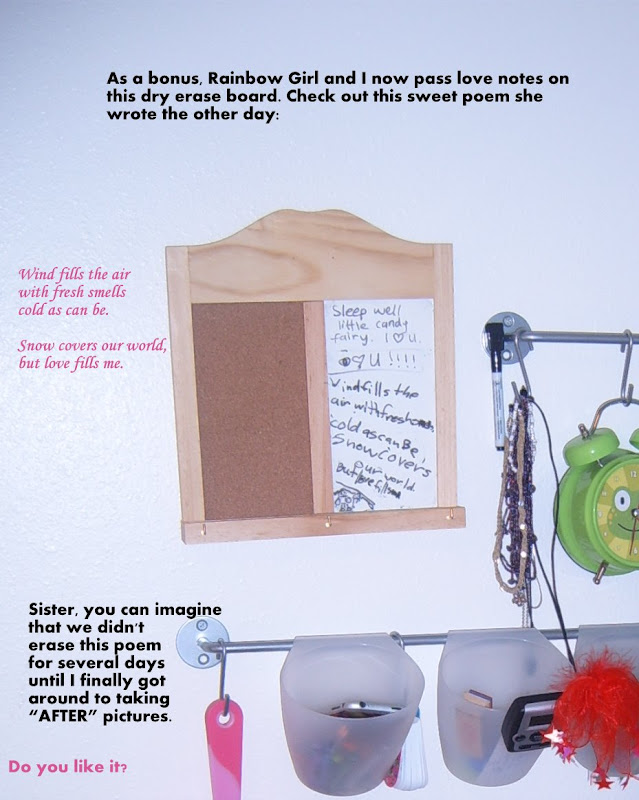 As a bonus, Rainbow Girl and I now pass love notes on
this dry erase board. Check out this sweet poem she
wrote the other day:
Wind fills the air
with fresh smells
cold as can be.
Snow covers our world,
but love fills me.
Sleep well
little candy
fairy. I ♥ U.
♥ U !!!!
Wind fills the
air with fresh
cold as can Be
Snow covers
our world
But love fills
Sister, you can imagine
that we didn't
erase this poem
for several days
until I finally got
around to taking
"AFTER" pictures.
Do you like it?